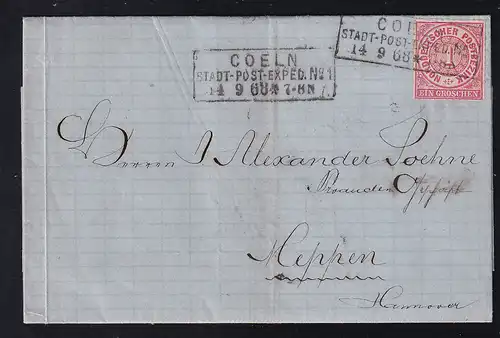 COELN
STADT-POST-EXPED. No 1
14 9 68 7-8N
CO
STADT-POST-E
14 9 68
NORDDEUTSCHER POSTBEZIRK
EIN GROSCHEN
Herren J Alexander Soehne
Meppen
Hannover